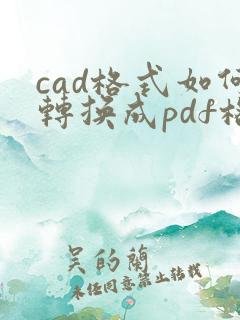 cad格式如何
轉換成pdf格
吴的蘭
未任同意禁止转载